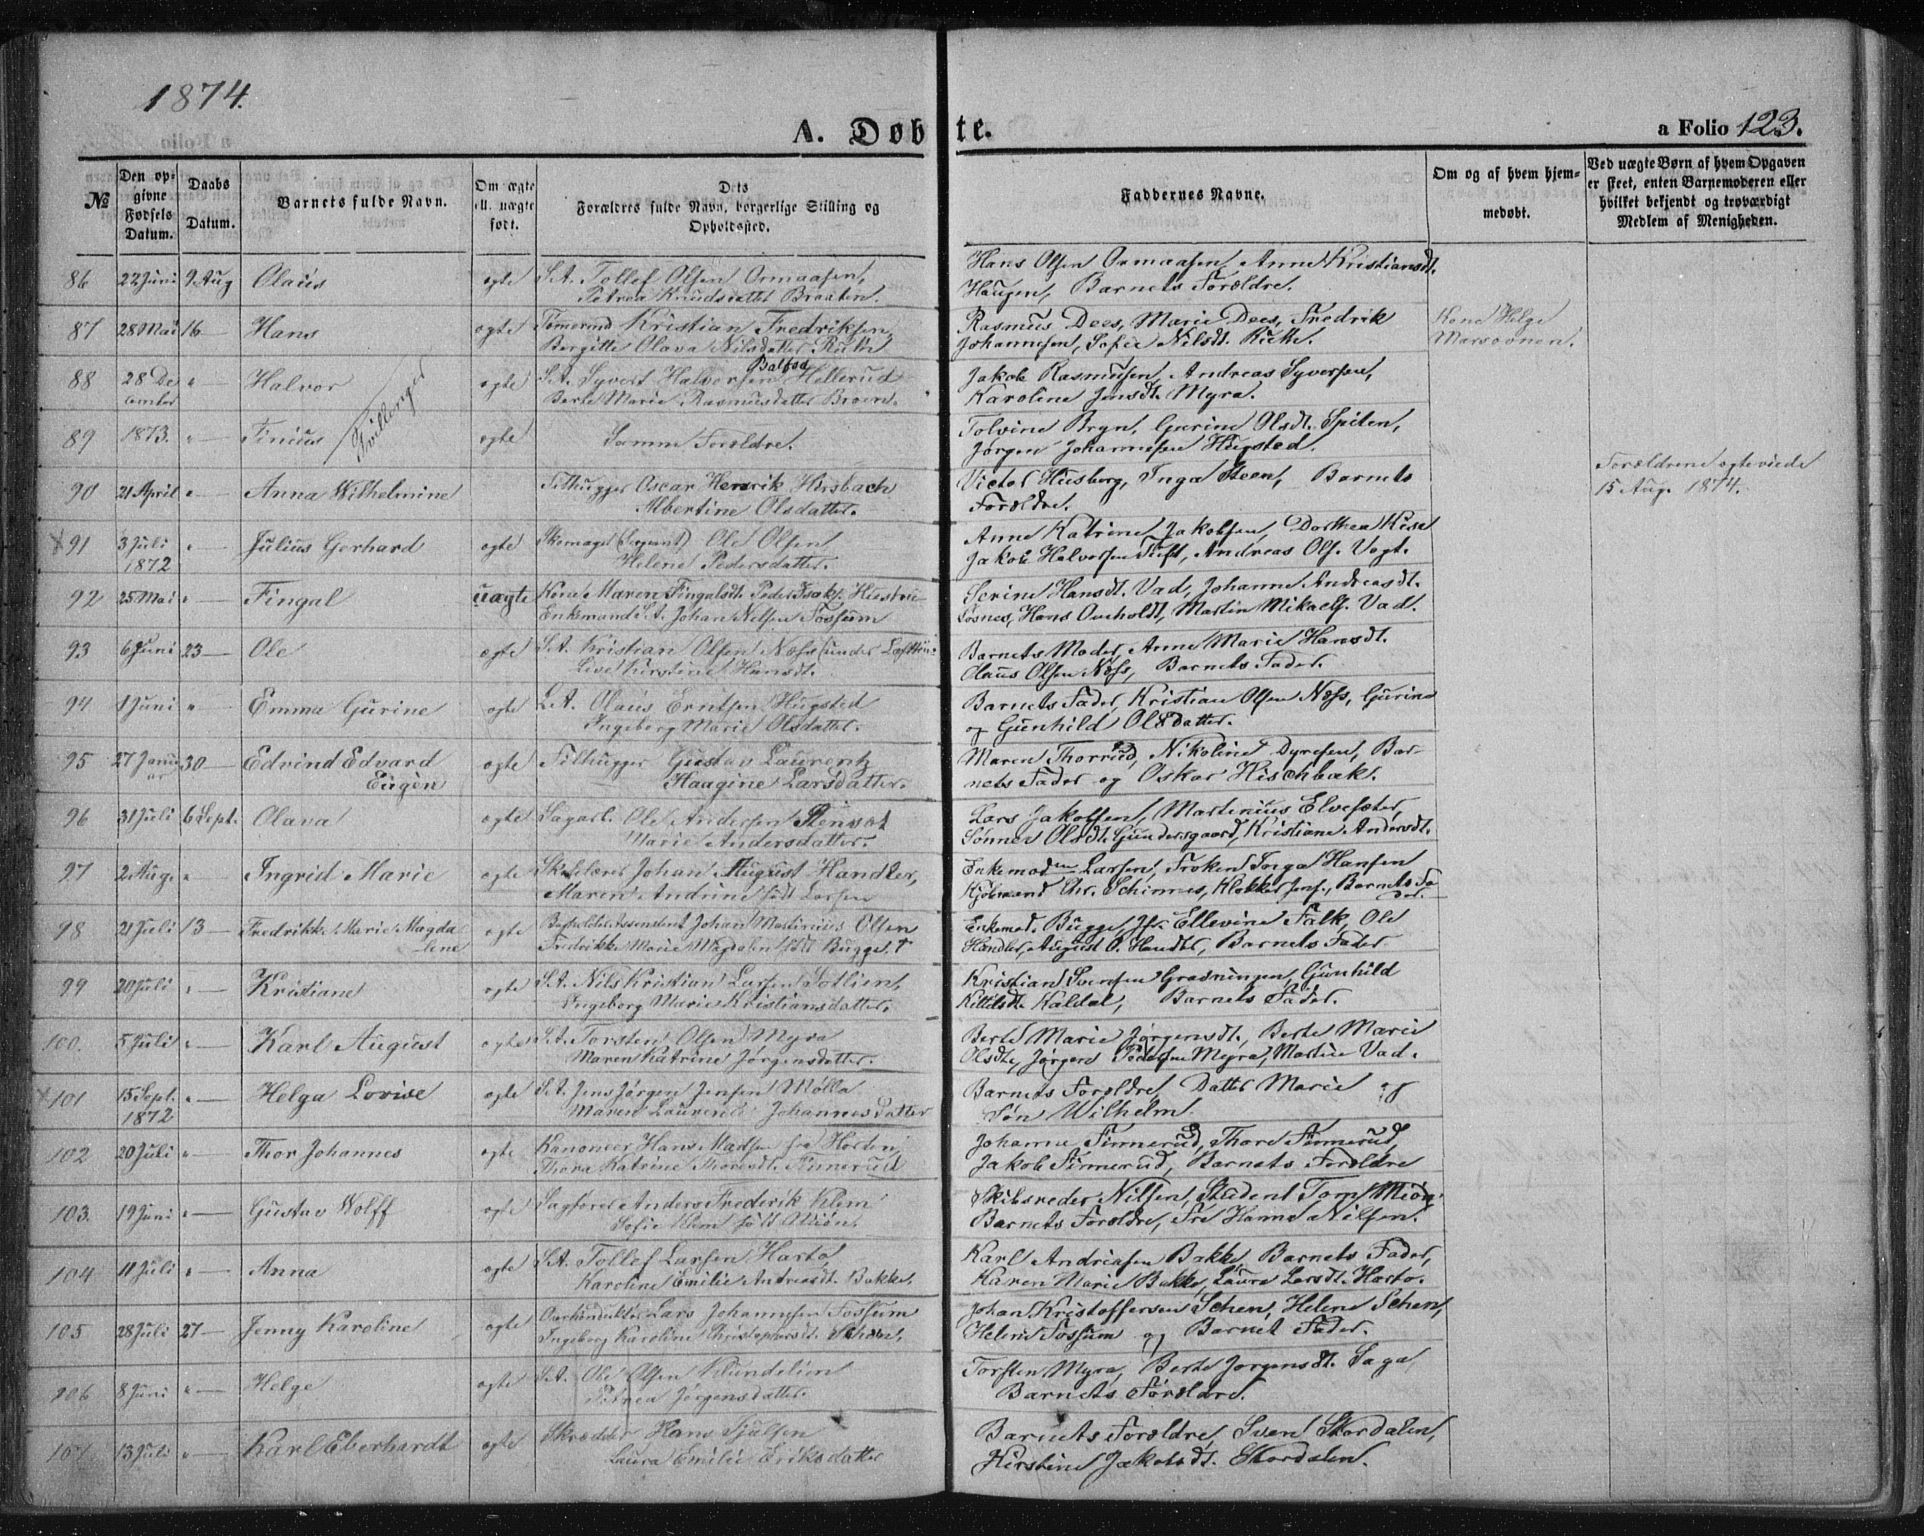 1874.
A. Døbte.
a Folio 123.
№
Den op-
givne
Fødsels
Datum.
Daabs
Datum.
Barnets fulde Navn.
Om ægte
ell. uægte
født.
Dets
Forældres fulde Navn, borgerlige Stilling og
Opholdssted.
Faddernes Navne.
Om og af hvem hjem-
medøbt.
Ved uægte Børn af hvem Opgaven
er skeet, enten Barnemoderen eller
hvilket bekjendt og troværdigt
Medlem af Menigheden.
86 22 Juni 9. Aug Olaus ægte S.A. Tollef Olsen Ormaasen,
Petrea Knudsdatter Braaten.
Hans Olsen Ormaasen, Anne Kristiansdt.
Haugen, Barnets Forældre.
87 28 Mai 16 — Hans ægte Tømrmd Kristian Fredriksen,
Bergitte Olava Nilsdatter
Rasmus Dees, Marie Dees, Fredrik
Johannesen, Sofie Nilsdt.
Kone Helge
Marsovnen.
88 28 De
cember Halvor Tvillinger ægte S.A. Syvert Halvorsen Hellerud
Berte Marie Rasmusdatter Broen.
Jakob Rasmusen, Andreas Syversen,
Karoline Jensdt. Myra.
89 1873. " — Finius ægte Samme Forældre.
Tolvine Bryn, Gurine Olsdt. Spiten,
Jørgen Johannesen Hugsted.
90 21 April " — Anna Wilhelmine Filhugger Oscar Henrik Hirsbach
Albertine Olsdatter.
Victor Husberg, Inga Steen, Barnets
Forældre.
Forældrene ægteviede
15 Aug. 1874.
91 3 Juli
1872 " — Julius Gerhard ægte Skomager (Sergeant) Ole Olsen
Helene Pedersdatter.
Anne Katrine Jakobsen, Dorthea Kise
Jakob Halvorsen Tuft, Andreas Ols. Vogt.
92 25 Mai " — Fingal uægte Kone Maren Fingalsdt. Peder Isaks. Hustru
Enkemand S.A. Johan Nilsen Fossum
Serine Hansdt. Vad, Johanne Andreasdt.
Hans Omholdt, Martin Mikaels. Vad.
93 6 Juni 23 — Ole ægte S.A. Kristian Olsen Næss (under
Live Kirstine Hansdt.
Barnets Moder, Anne Marie Hansdt.
Olaus Olsen Næss, Barnets Fader.
94 1 Juni " — Emma Gurine ægte S.A. Olaus Eriksen Hugsted
Ingeborg Marie Olsdatter.
Barnets Fader, Kristian Olsen Næss, Gurine
og Gunhild Olsdatter.
95 27 Janu
ar 30 — Edvind Edvard
Eugen ægte Filhugger Gustav Laurentz
Haagine Larsdatter.
Maren Thorrud, Nikoline Dyresen, Bar-
nets Fader og Oskar Hischbak.
96 31 Juli 6 Sept. Olava ægte Sagarb. Ole Andersen Stensæt
Marie Andersdatter.
Lars Jakobsen, Martinius Elvesæter,
Sønner Olsdt. Gundersgaard, Kristiane Andersdt.
97 2 Aug. " Ingrid Marie ægte Skolelærer Johan August Handler,
Maren Andrine født Larsen
Enkemaden Larsen, Frøken Inga Hansen
Kjøbmand Chr. Schinnes, Klokker Jens., Barnets Fa
der.
98 21 Juli 13 — Fredrikke Marie Magda
lene ægte Johan Martinius Olsen
Fredrikke Marie Magdalene født Bugge. †
Enkemad. Bugge, Jfr. Ellevine Falk, Ole
Handler, August O. Handler, Barnets Fader
99 20 Juli " — Kristiane ægte S.A. Nils Kristian Larsen Solien,
Ingeborg Marie Kristiansdatter.
Kristian Svensen Gradningen, Gunhild
Kittilsdt. Kaldal, Barnets Fader.
100. 5 Juli " — Karl August ægte S.A. Torsten Olsen Myra
Maren Katrine Jørgensdatter.
Berte Marie Jørgensdt., Berte Marie
Olsdt, Jørgen Myra, Martin Vad.
101 15 Sept.
1872 " — Helga Lovise ægte S.A. Jens Jørgen Jensen Mølla
Maren Laurence Johannesdatter
Barnets Forældre, Datter Marie og
Søn Wilhelm.
102 20 Juli " — Thor Johannes ægte Kanoneer Hans Madsen fra Horten,
Thora Katrine Thoresdt. Finnerud
Johanne Finnerud, Thore Finnerud,
Jakob Finnerud, Barnets Forældre
103. 19 Juni " — Gustav Wolff ægte Sagfører Anders Frederik Klem
Sofie Klem født
Skibsreder Nilsen, Student Tom Miøn
Barnets Forældre, Fre Hanna Nilsen.
104 11 Juli " Anna ægte S.A. Tollef Larsen Harto,
Karoline Emilie Andreasdt. Bakke.
Karl Andreasen Bakke, Barnets Fader,
Karen Marie Bakke, Laura Larsdt. Harto.
105 28 Juli 27 — Jenny Karoline ægte Lars Johannesen Fossum
Ingeborg Karoline Christophersdt. Schen.
Johan Kristoffersen Schen, Helene Schen,
Helene Fossum og Barnet Fader.
106 8 Juni " — Helge ægte S.A. Ole Olsen Klundelien
Jørgensdatter.
Torsten Myra, Berte Jørgensdt. Saga,
Barnets Forældre.
107 13 Juli " — Karl Eberhardt ægte Skræder Hans Sjulsen
Laura Emilie Eriksdatter
Barnets Forældre, Sven Skordalen,
Kirstine Jakobsdt. Skordalen.